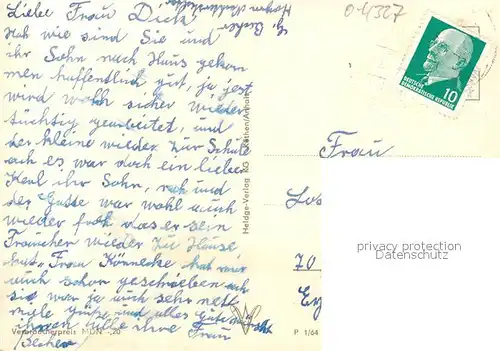 Liebe Frau Dick
Ach wie sind Sie und
ihr Sohn nach Haus gekom
men hoffentlich gut, ja jest
wird wohl sicher wieder
tüchtig gearbeitet, und
der kleine wieder zur Schule
ach es war doch ein lieber
Kerl ihr Sohn, und
der Gutte war wohl auch
wieder froh das er sein
Frauchen wieder zu Hause
hat. Frau Könnecke hat mir
auch schon geschrieben ach
sie war ja auch sehr nett
viele Grüße und alles Gute
ihnen ihre Frau
Becher
Verbraucherpreis MDN -,20
Heldge-Verlag KG Köthen/Anhalt
P 1/64
04327
DEUTSCHE
DEMOKRATISCHE REPUBLIK
10
Frau
Los
70
privacy protection
Datenschutz